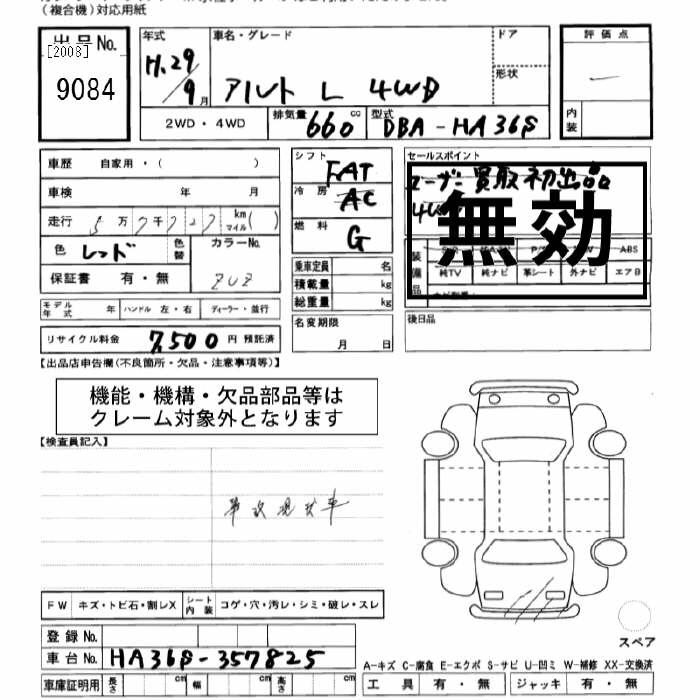 (複合機)対応用紙
出品No. 年式 車名・グレード ドア 評価点
[2008] H.29 形状
9084 9月 アルト L 4WD
2WD・4WD 排気量 660 cc 型式 DBA-HA36S 内装
車歴 自家用・( ) シフト FAT セールスポイント
ユーザー買取初出品
車検 年 月 冷房 AC 4WD
無効
走行 万 千 km マイル ( ) 燃料 G
色 レッド 色替 カラーNo. ZUZ ABS
乗車定員 名 純TV 純ナビ 革シート 外ナビ エアB
保証書 有・無 積載量 kg
総重量 kg
モデル年式 年 ハンドル 左・右 ディーラー・並行 名変期限 月 日 後日品
リサイクル料金 7,500 円 預託済
【出品店申告欄(不良箇所・欠品・注意事項等)】
機能・機構・欠品部品等は
クレーム対象外となります
【検査員記入】
FW キズ・トビ石・割レX シート内装 コゲ・穴・汚レ・シミ・破レ・スレ
スペア
登録No.
車台No. HA36S-357825
A-キズ C-腐食 E-エクボ S-サビ U-凹ミ W-補修 XX-交換済
車庫証明用 長さ cm 幅 cm 高さ cm 工具 有・無 ジャッキ 有・無